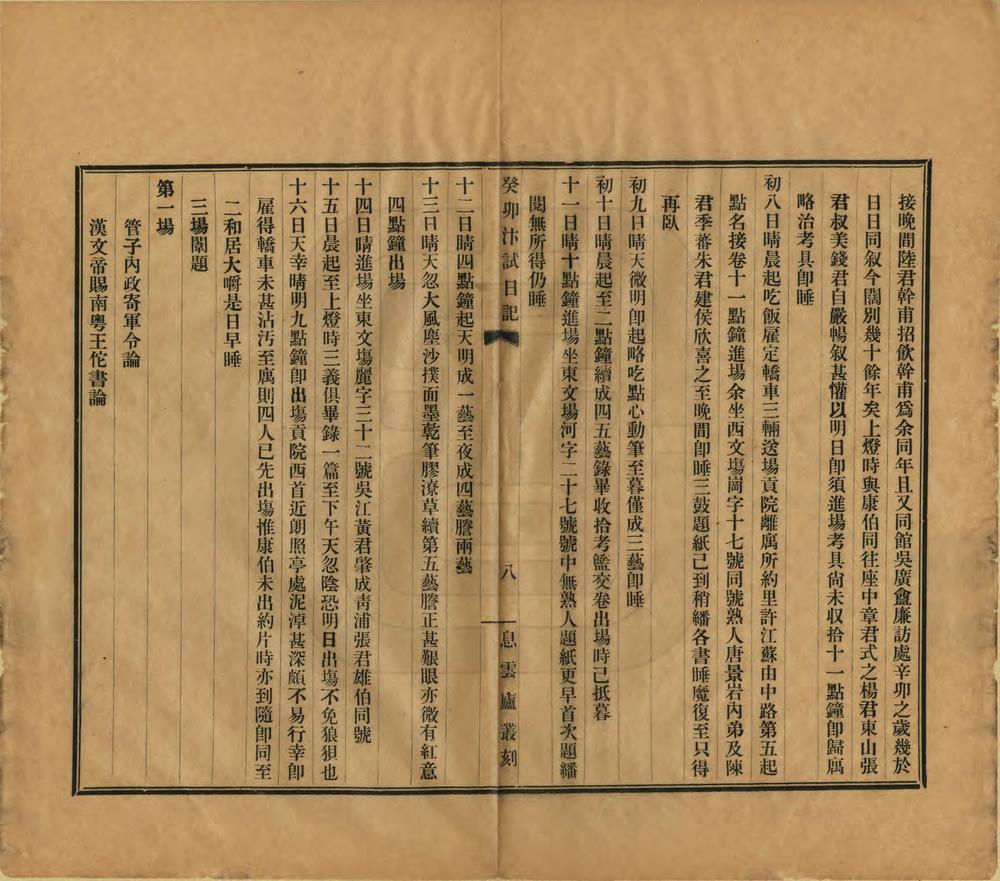 接晚間陸君幹甫招飲幹甫爲余同年且又同館吳廣盦廉訪處辛卯之歲幾於
日日同叙今闊別幾十餘年矣上燈時與康伯同往座中章君式之楊君東山張
君叔美錢君自嚴暢叙甚懽以明日卽須進場考具尙未収拾十一點鐘卽歸寓
略治考具卽睡
初八日晴晨起吃飯雇定轎車三輛送場貢院離寓所約里許江蘇由中路第五起
點名接卷十一點鐘進場余坐西文場崗字十七號同號熟人唐景岩內弟及陳
君季蕃朱君建侯欣喜之至晚間卽睡三鼓題紙己到稍繙各書睡魔復至只得
再臥
初九日晴天微明卽起略吃點心動筆至暮僅成三藝卽睡
初十日晴晨起至二點鐘續成四五藝錄畢收拾考籃交卷出場時己抵暮
十一日晴十點鐘進場坐東文場河字二十七號號中無熟人題紙更早首次題繙
閱無所得仍睡
癸卯汴試日記
八
息雲廬叢刻
十二日晴四點鐘起天明成一藝至夜成四藝謄兩藝
十三日晴天忽大風塵沙撲面墨乾筆膠潦草續第五藝謄正甚艱眼亦微有紅意
四點鐘出場
十四日晴進場坐東文塲麗字三十二號吳江黃君肇成靑浦張君雄伯同號
十五日晨起至上燈時三義俱畢錄一篇至下午天忽陰恐明日出塲不免狼狽也
十六日天幸晴明九點鐘卽出塲貢院西首近朗照亭處泥淖甚深頗不易行幸卽
雇得轎車未甚沾汚至寓則四人已先出塲惟康伯未出約片時亦到隨卽同至
二和居大嚼是日早睡
三場闈題
第一場
管子內政寄軍令論
漢文帝賜南粵王佗書論